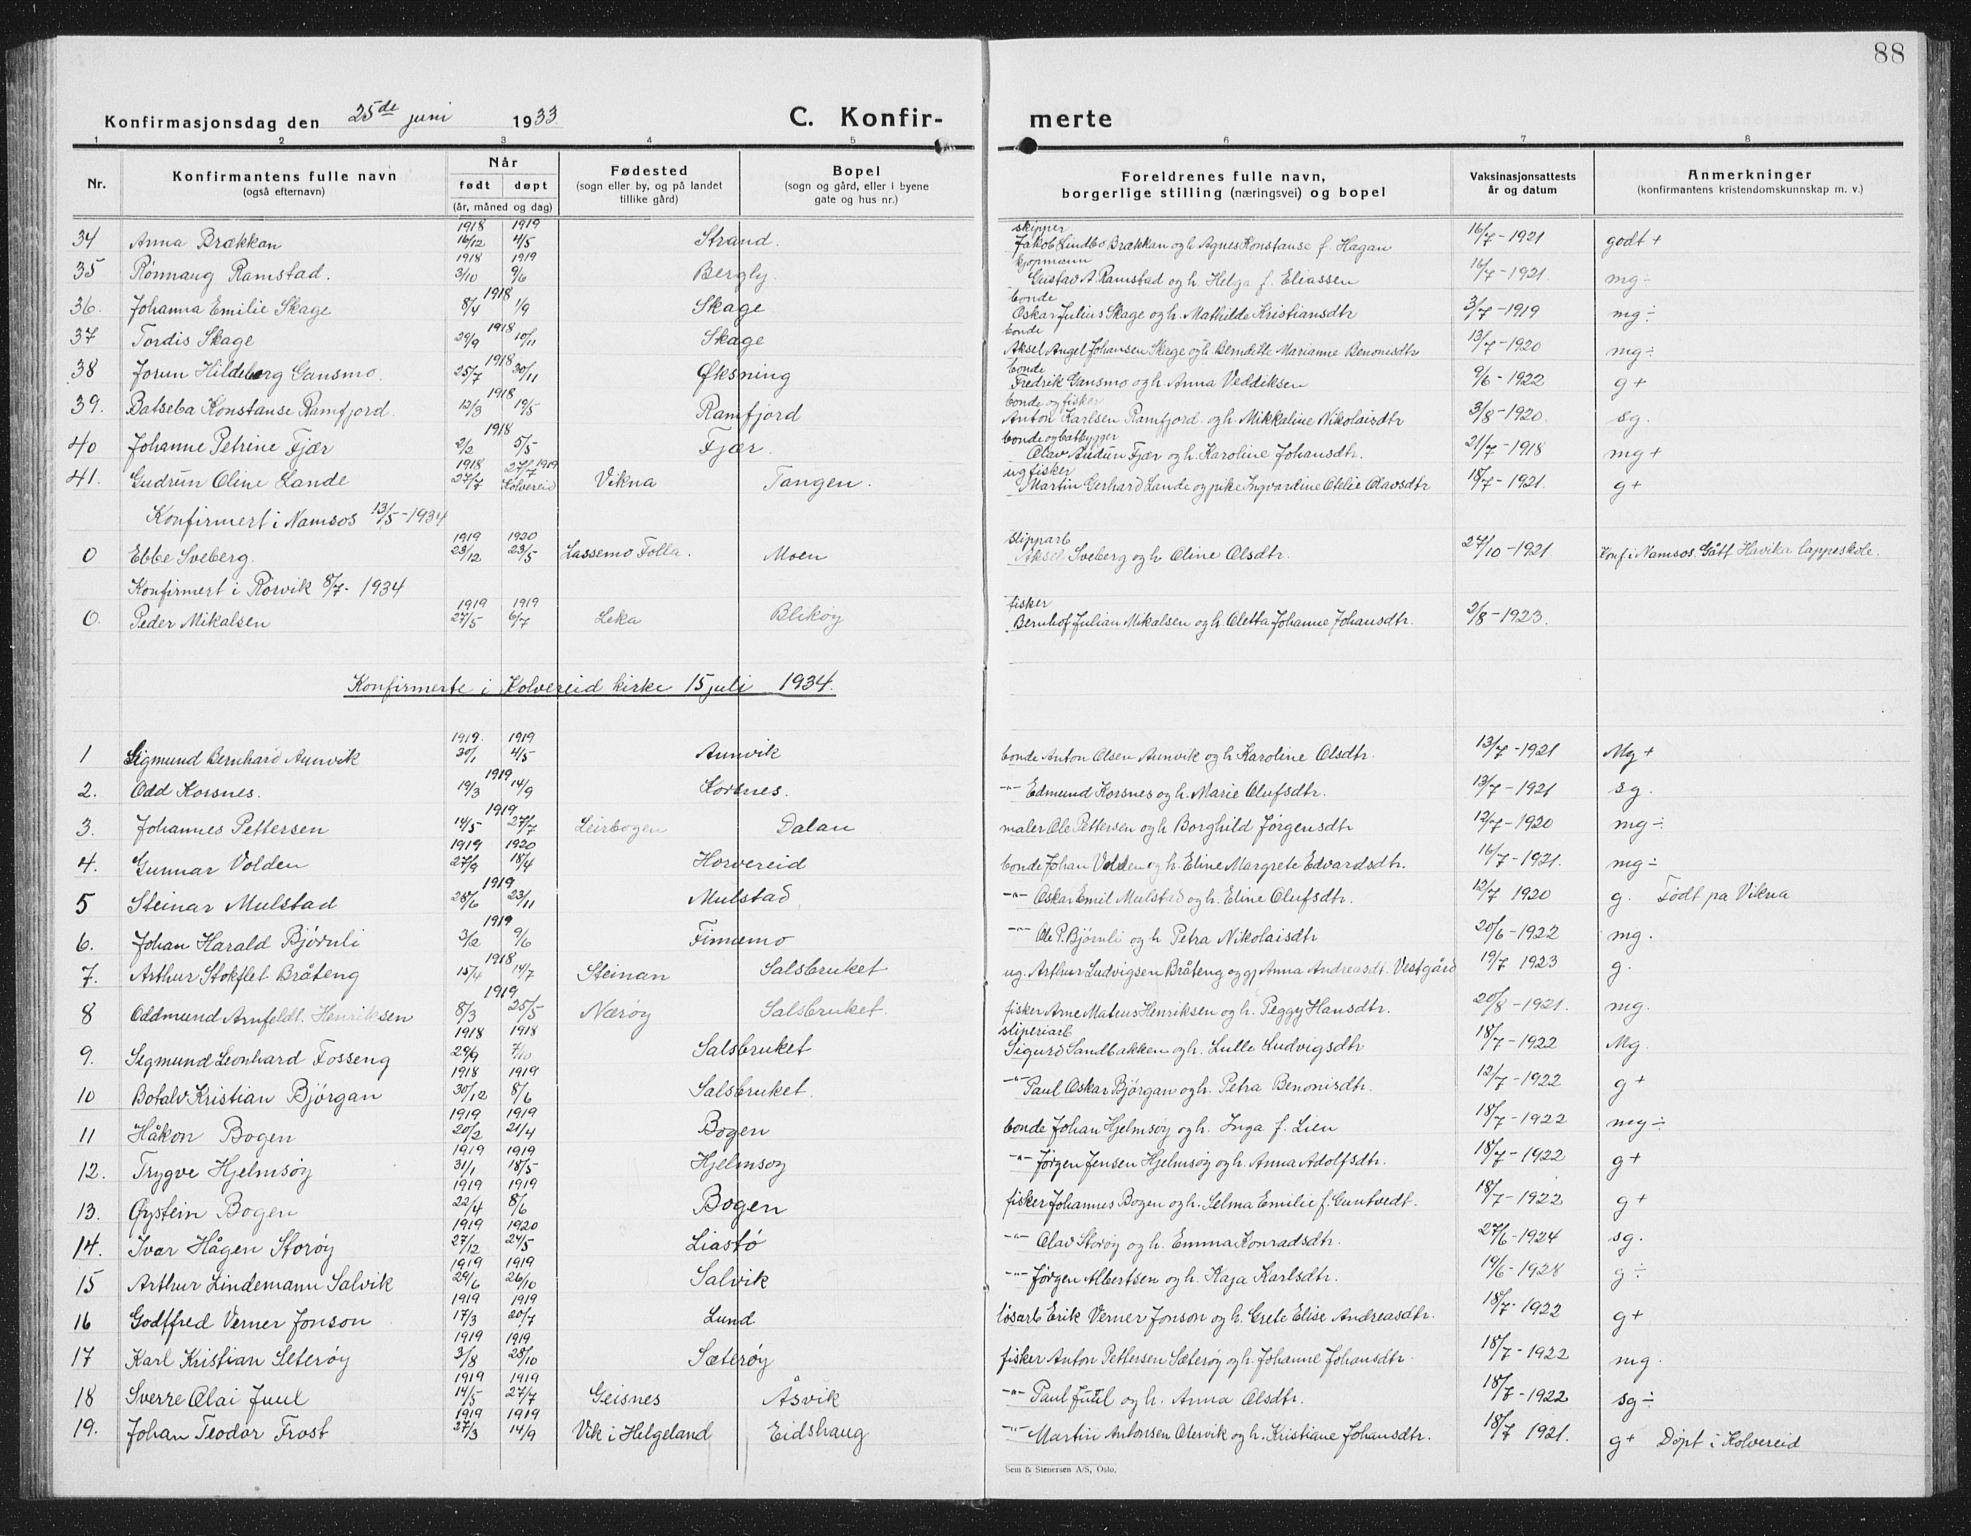 88
Konfirmasjonsdag den 25de juni 1933 C. Konfir-merte
1 2 3 4 5 6 7 8
Nr. Konfirmantens fulle navn (også efternavn) Når født døpt (år, måned og dag) Fødested (sogn eller by, og på landet tillike gård) Bopel (sogn og gård, eller i byene gate og hus nr.) Foreldrenes fulle navn, borgerlige stilling (næringsvei) og bopel Vaksinasjonsattests år og datum Anmerkninger (konfirmantens kristendomskunnskap m. v.)
34 Anna Brækkan 1918 16/12 1919 4/5 Strand. skipper Jakob Lindbo Brækkan og h. Agnes Konstanse f. Hagan 16/7-1921 godt +
35 Rönnaug Ramstad. 1918 3/10 1919 9/6 Bergly. kjøpmann Gustav A. Ramstad og h. Helga f. Eliassen 16/7-1921. mg ÷
36. Johanna Emilie Skage 1918 8/4 1/9 Skage bonde Oskar Julius Skage og h. Mathilde Kristiansdtr 3/7-1919 mg ÷
37 Tordis Skage 1918 29/9 10/11 Skage bonde Aksel Angel Johansen Skage og h. Berndette Marianne Benonisdtr 13/7-1920 mg ÷
38 Jorun Hildeborg Gansmo 1918 25/7 30/11 Øksning bonde Fredrik Gansmo og h. Anna Veddiksen 9/6-1922 g +
39. Batseba Konstanse Ramfjord. 1918 12/3 19/5 Ramfjord bonde og fisker Anton Karlsen Ramfjord og h. Mikkaline Nikolaisdtr 3/8-1920. sg.
40 Johanne Petrine Fjær 1918 2/2 5/5 Fjær. bonde og båtbygger Olav Audun Fjær og h. Karoline Johansdtr. 21/7-1918 mg +
41. Gudrun Oline Lande 1918 27/7 27/7 1919 Kolvereid Vikna Tangen. ug fisker Martin Gerhard Lande og pike Ingvardine Otelie Olavsdtr 18/7-1921. g +
Konfirmert i Namsos 13/5-1934
0 Ebbe Sveberg. 1919 23/12 1920 23/5 Lassemo Folla. Moen slipparb Aksel Sveberg og h Oline Olsdtr. 27/10-1921 Konf i Namsos. Gått Havika lappeskole.
Konfirmert i Rörvik 8/7-1934
0. Peder Mikalsen 1919 27/5 1919 6/7 Leka Blikøy fisker Bernhof Julian Mikalsen og h. Oletta Johanne Johansdtr. 2/8-1923.
Konfirmerte i Kolvereid kirke 15 juli 1934.
1 Sigmund Bernhard Aunvik 1919. 30/1 1919 4/5 Aunvik bonde Anton Olsen Aunvik og h Karoline Olsdtr. 13/7-1921 Mg +
2. Odd Korsnes. 1919 19/3 14/9 Korsnes. -"- Edmund Korsnes og h. Marie Olufsdtr. 13/7-1921 sg.
3. Johannes Pettersen 1919 14/5 27/7 Leirbogen Dalan maler Ole Pettersen og h Borghild Jørgensdtr 12/7-1920 mg ÷
4. Gunnar Volden 1919 27/9 1920 18/4 Horvereid bonde Johan Volden og h. Eline Margrete Edvardsdtr. 16/7-1921. mg ÷
5 Steinar Mulstad 1919 28/6 23/11 Mulstad -"- Oskar Emil Mulstad og h. Eline Olufsdtr. 12/7 1920 g. Født på Vikna
6. Johan Harald Bjørnli 1919 3/2 9/6 Finnemo -"- Ole P. Bjørnli og h Petra Nikolaisdtr 20/6-1922 mg.
7. Arthur Stokflet Bråteng 1918 15/4 14/7 Steinan Salsbruket ug. Arthur Ludvigsen Bråteng og pj Anna Andreasdt. Vestgård 19/7 1923 g.
8 Oddmund Arnfeldt. Henriksen 1919 8/3 25/5 Nærøy Salsbruket. fisker Arne Mateus Henriksen og h. Peggy Hansdtr. 20/8-1921. mg.
9. Sigmund Leonhard Fosseng 1918 29/9 1918 7/10 Salsbruket sliperiarb Sigurd Sandbakken og h. Lulle Ludvigsdtr 18/7-1922 Mg.
10 Botolv Kristian Bjørgan 1918 30/12 1919 8/6 Salsbruket. -"- Paul Oskar Bjørgan og h. Petra Benonisdtr. 12/7-1922 g +
11 Håkon Bogen 1919 20/2 1919 21/4 Bogen bonde Johan Hjelmsøy og h. Inga f. Lien 18/7-1922 mg ÷
12. Trygve Hjelmsøy 1919 31/1 1919 18/5 Hjelmsøy -"- Jørgen Jensen Hjelmsøy og h. Anna Adolfsdtr. 18/7-1922 g +
13. Øystein Bogen 1919 22/4 1919 8/6 Bogen fisker Johannes Bogen og h. Selma Emilie f. Guntvedt. 18/7-1922 g +
14. Ivar Hågen Storøy 1919 27/12 1920 24/5 Liastø -"- Olav Storøy og h. Emma Konradsdtr. 27/6-1924 sg.
15 Arthur Lindemann Salvik 1919 29/6 1919 26/10 Salvik -"- Jørgen Albertsen og h. Kaja Karlsdtr. 19/6-1928 g ÷
16 Godtfred Verner Jonson 1919 17/3 1919 20/7 Lund løsarb Erik Verner Jonson og h. Grete Elise Andreasdtr. 18/7-1922 g +
17 Karl Kristian Seterøy 1919 3/8 1919 28/10 Sæterøy fisker Anton Pettersen Sæterøy og h. Johanne Johansdtr. 18/7-1922 mg.
18 Sverre Olai Juul 1919 14/5 1919 27/7 Geisnes Åsvik -"- Paul Juul og h. Anna Olsdtr. 18/7-1922 sg ÷
19. Johan Teodor Frost 1919 27/3 1919 14/9 Vik i Helgeland Eidshaug -"- Martin Antonsen Olervik og h. Kristiane Johansdtr. 18/7 1921. g + Døpt i Kolvereid
Sem & Stenersen A/S, Oslo.